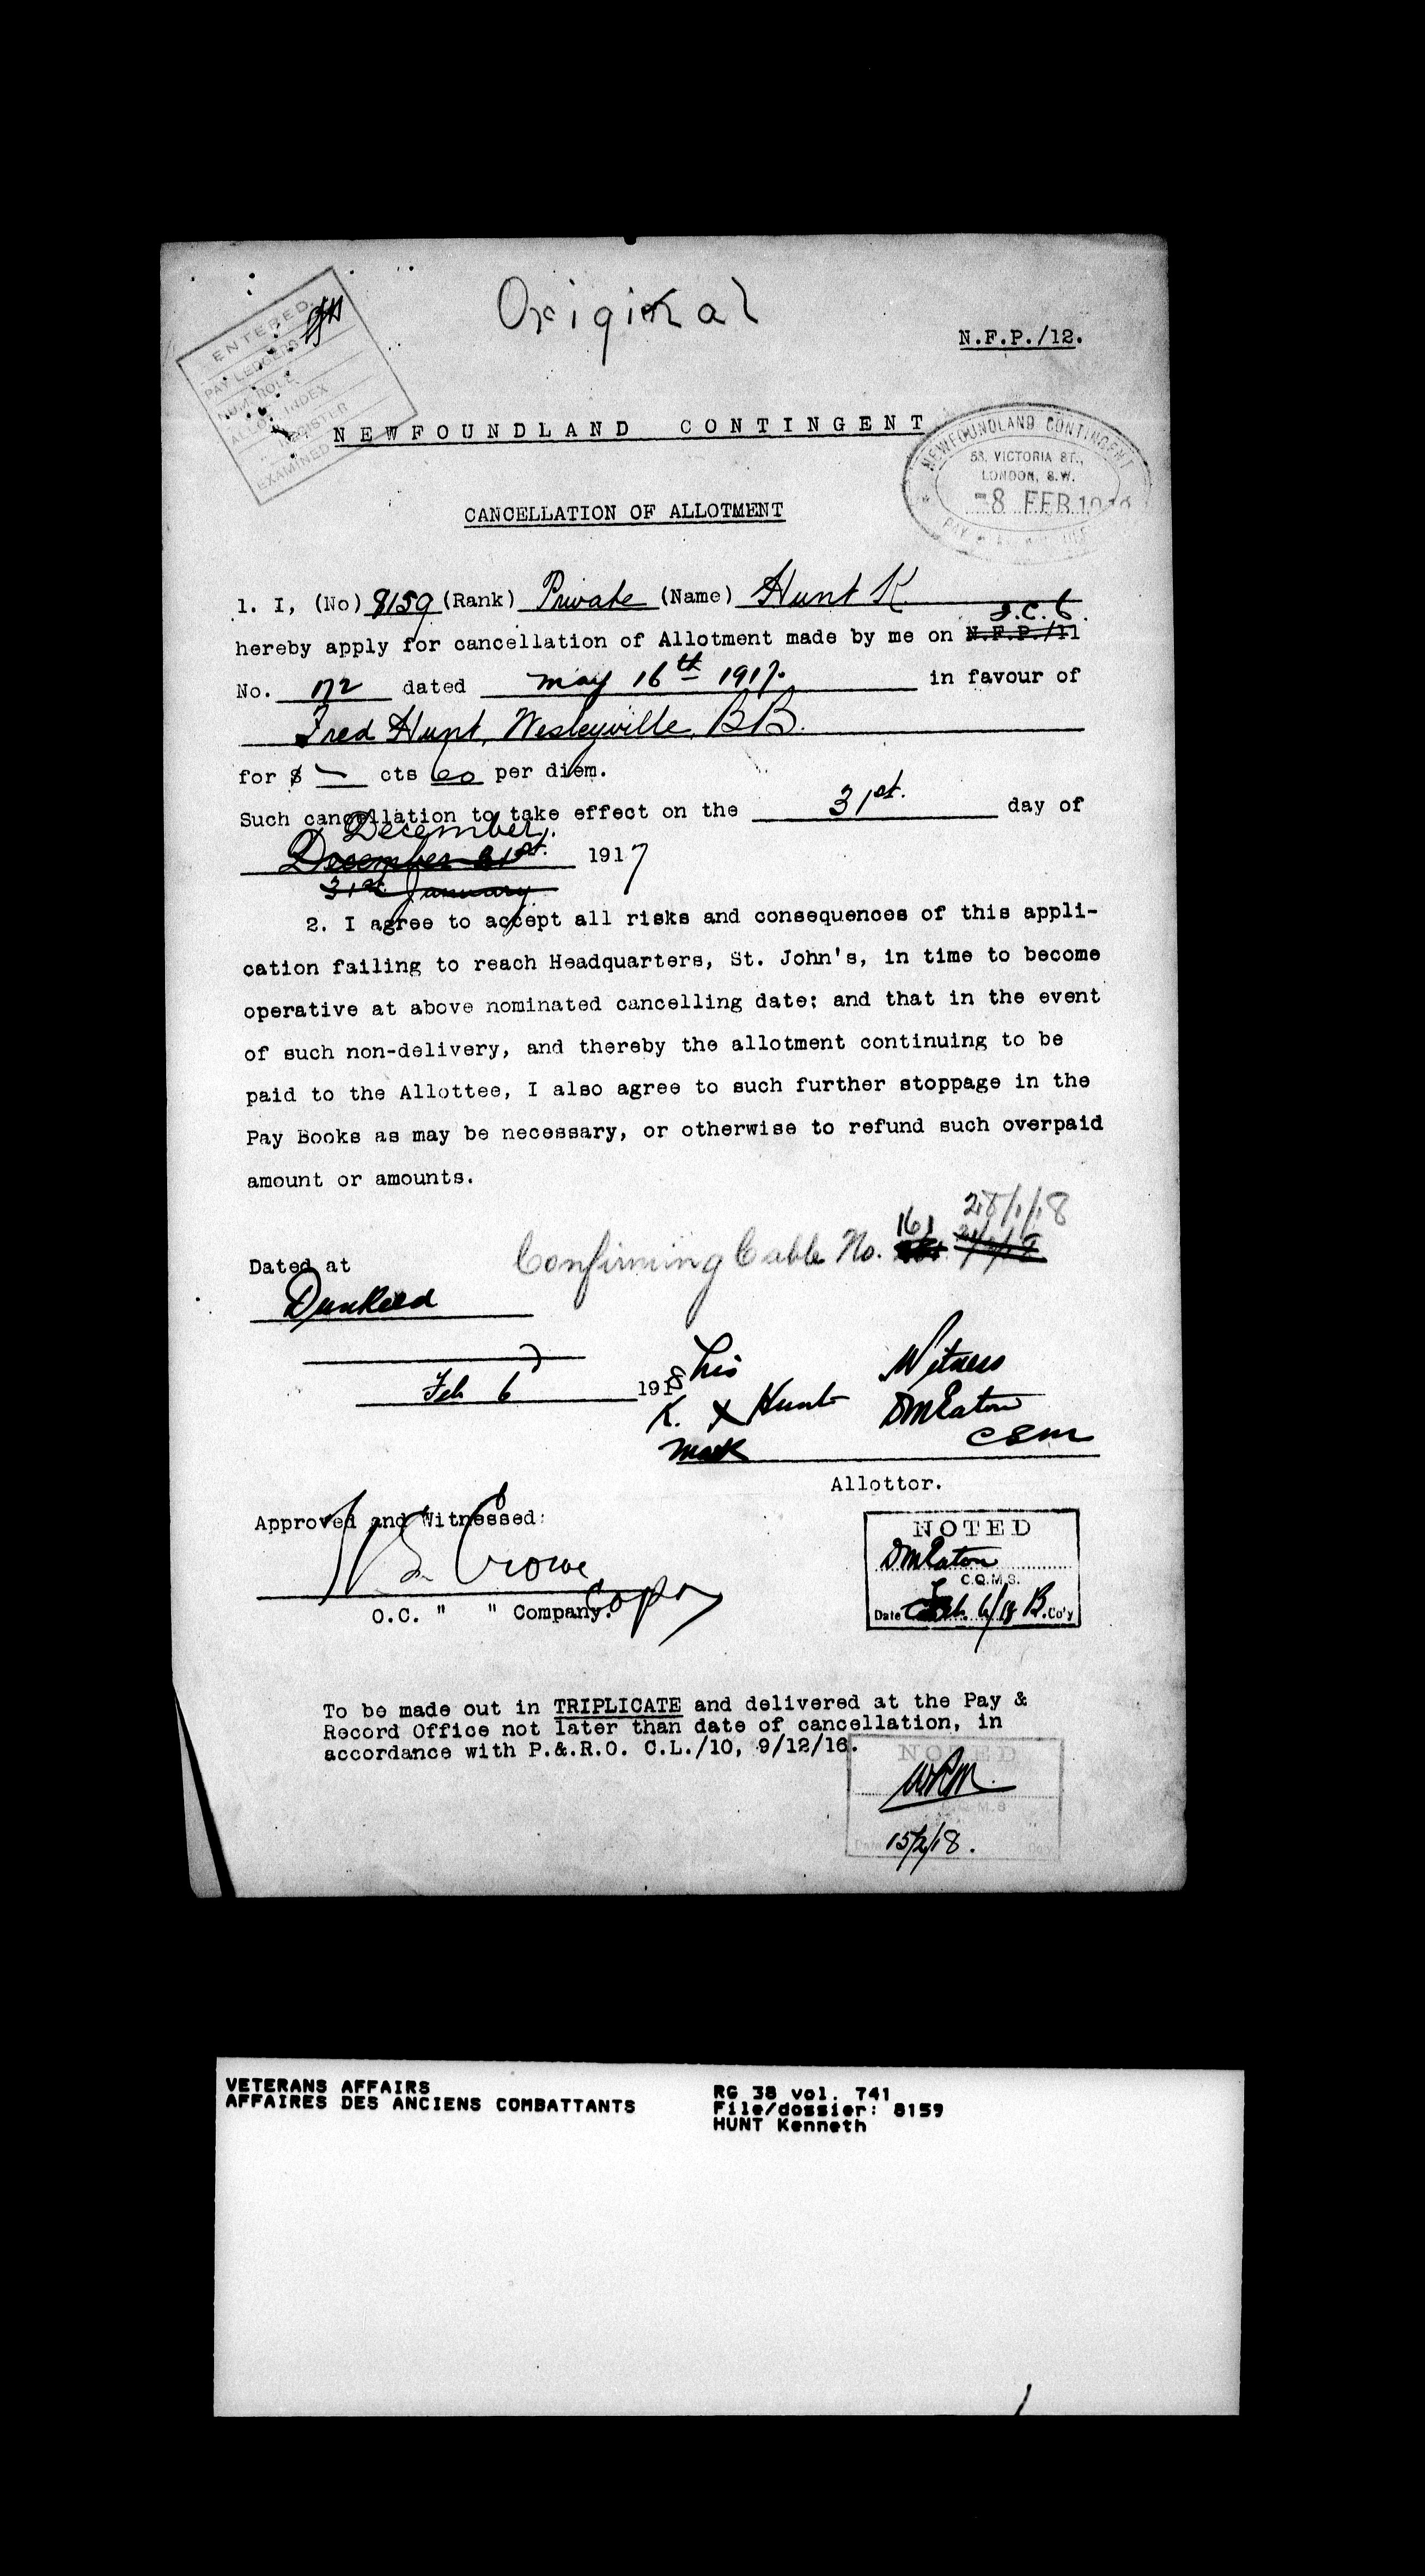 Original
N.F.P./12.
ENTERED.
PAY LEDGERS
NUM. ROLE
ALLOT. INDEX
" REGISTER
EXAMINED
NEWFOUNDLAND CONTINGENT
NEWFOUNDLAND CONTINGENT
53, VICTORIA ST.,
LONDON, S.W.
-8 FEB
PAY &
CANCELLATION OF ALLOTMENT
1. I, (No) 8159 (Rank) Private (Name) Hunt K
hereby apply for cancellation of Allotment made by me on N.F.P./11
No. 172 dated May 16th 1917. in favour of
Fred Hunt, Wesleyville, B.B.
for $ - cts 60 per diem.
Such cancellation to take effect on the 31st. day of
December.
December 31st. 1917
31st January
2. I agree to accept all risks and consequences of this appli-
cation failing to reach Headquarters, St. John's, in time to become
operative at above nominated cancelling date; and that in the event
of such non-delivery, and thereby the allotment continuing to be
paid to the Allottee, I also agree to such further stoppage in the
Pay Books as may be necessary, or otherwise to refund such overpaid
amount or amounts.
28/1/18
Confirming Cable No. 161
Dated at
Feb 6 1918
his Witness
K. x Hunt DMEaton
mark CSM
Allottor.
Approved and Witnessed:
Crowe
Capt
O.C. " " Company.
NOTED
DMEaton
C.Q.M.S.
Date Feb. 6/18 B. Co'y
To be made out in TRIPLICATE and delivered at the Pay &
Record Office not later than date of cancellation, in
accordance with P.&.R.O. C.L./10, 9/12/16.
NOTED
15/2/18.
VETERANS AFFAIRS
AFFAIRES DES ANCIENS COMBATTANTS
RG 38 vol. 741
File/dossier: 8159
HUNT Kenneth